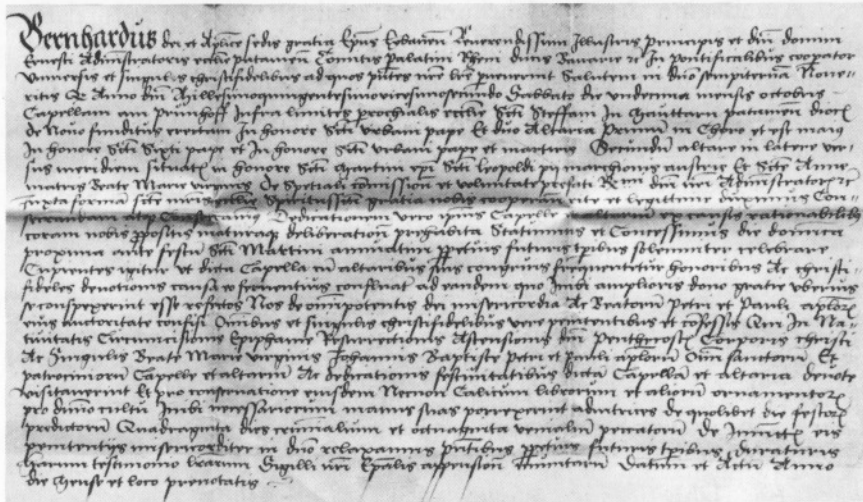 Bernhardus dei et Aplice sedis gratia Epus Reverendissimi Illustris principis et dni domini
Ernesti Administratoris ecclie pataven Comitis palatini Rheni ducis Bavarie In pontificalibus cooperator
Universis et singulis christifidelibus ad quos pntes nre lre pvenerint Salutem in dno sempiternam Nove-
ritis Anno dni Millesimoquingentesimovicesimosecundo Sabbato die undecima mensis octobris
Capellam am prunhoff Infra limites prochialis ecclie Scti Steffani In pataven dioc
de Novo funditus erectam In honore Scti urbani pape Et duo Altaria primum in Choro et est maius
in honore Scti Sixti pape et In honore Scti urbani pape et martiris Secundum altare in latere ver-
sus meridiem situatum in honore Scti Martini epi Scti leopoldi pii marchionis austrie Et Scte Anne
matris Beate Marie virginis De Spetiali comission et voluntate prefati Rmi dni nri Administratoris
Juxta formam scte mris ecclie Spiritussti gratia nobis cooperan rite et legittime duximus Con-
secrandam atqz Consecravimus Dedicationem vero ipius Capelle altarium ex causis rationabilibz
coram nobis ppositis maturaqz deliberation prehabita Statuimus et Concessimus die dominica
proxima ante festum Scti Martini annuatim ppetuis futuris tpibus solemniter celebrare
Cupientes igitur ut dicta Capella cum altaribus suis congruis frequentetur honoribus Ac christi
fideles devotionis causa eo ferventius confluant ad eandem quo Inibi amplioris dono gratie uberius
se conspexerint esse refectos Nos de omipotentis dei misericordia Ac Beatorum petri et Pauli aplorum
eius auctoritate confisi Omibus et singulis christifidelibus vere penitentibus et confessis Qui In Na-
tivitatis Circumcisionis Epiphanie Resurrectionis Ascensionis dni Penthecostes Corporis christi
Ac Singulis Beate Marie virginis Johannis Baptiste petri et pauli aplorum Oim sanctorum Et
patrocinorum Capelle et altarium Ac dedicationis festivitatibus dictam Capellam et altaria devote
visitaverint Et pro conservatione eiusdem Necnon Calicum librorum et aliorum ornamentorum
pro divino cultu Inibi necessariorum manus suas porrexerint adiutrices de quolibet die festorum
predictorum Quadraginta dies criminalium et octuaginta venialium peccatorum de iniunctis eis
penitentiis misericorditer in dno relaxamus pntibus ppetuis futuris tpibus duraturis
harum testimonio lrarum Sigilli nri Epalis appension munitarum Datum et Actum Anno
die mense et loco prenotatis